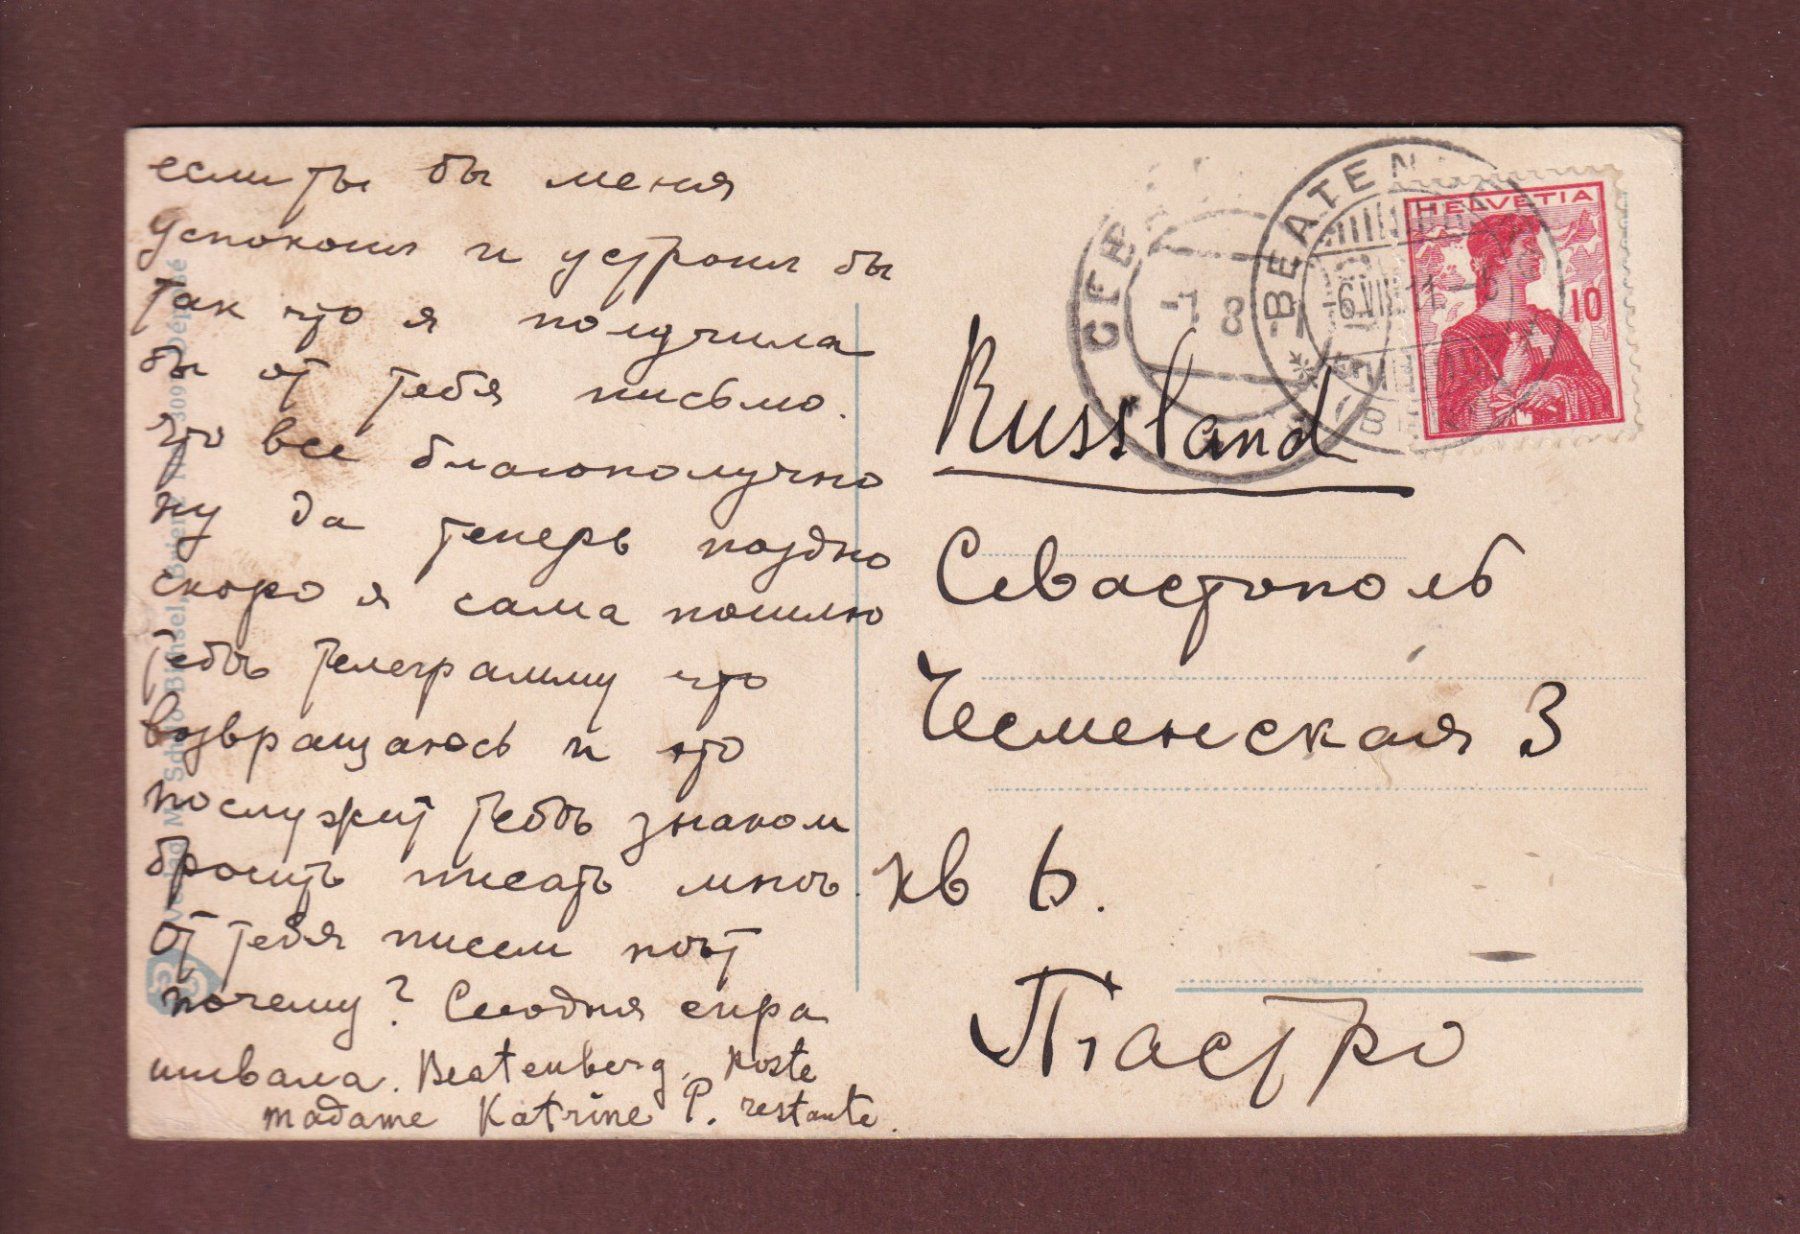 если ты бы меня
успокоил и устроил бы
так что я получила
бы от тебя письмо.
Что все благополучно
ну да теперь поздно
скоро я сама пошлю
тебѣ телеграмму что
возвращаюсь и это
послужит тебѣ знаком
бросить писать мнѣ.
От тебя писем нѣт
почему? Сегодня спра
шивала. Beatenberg. Poste
madame Katrine P. restante.
HELVETIA
10
BEATEN
-6.VIII.11.-6
СЕВ
-1 8
Russland
Севастополь
Чесменская 3
кв 6.
Пиастро